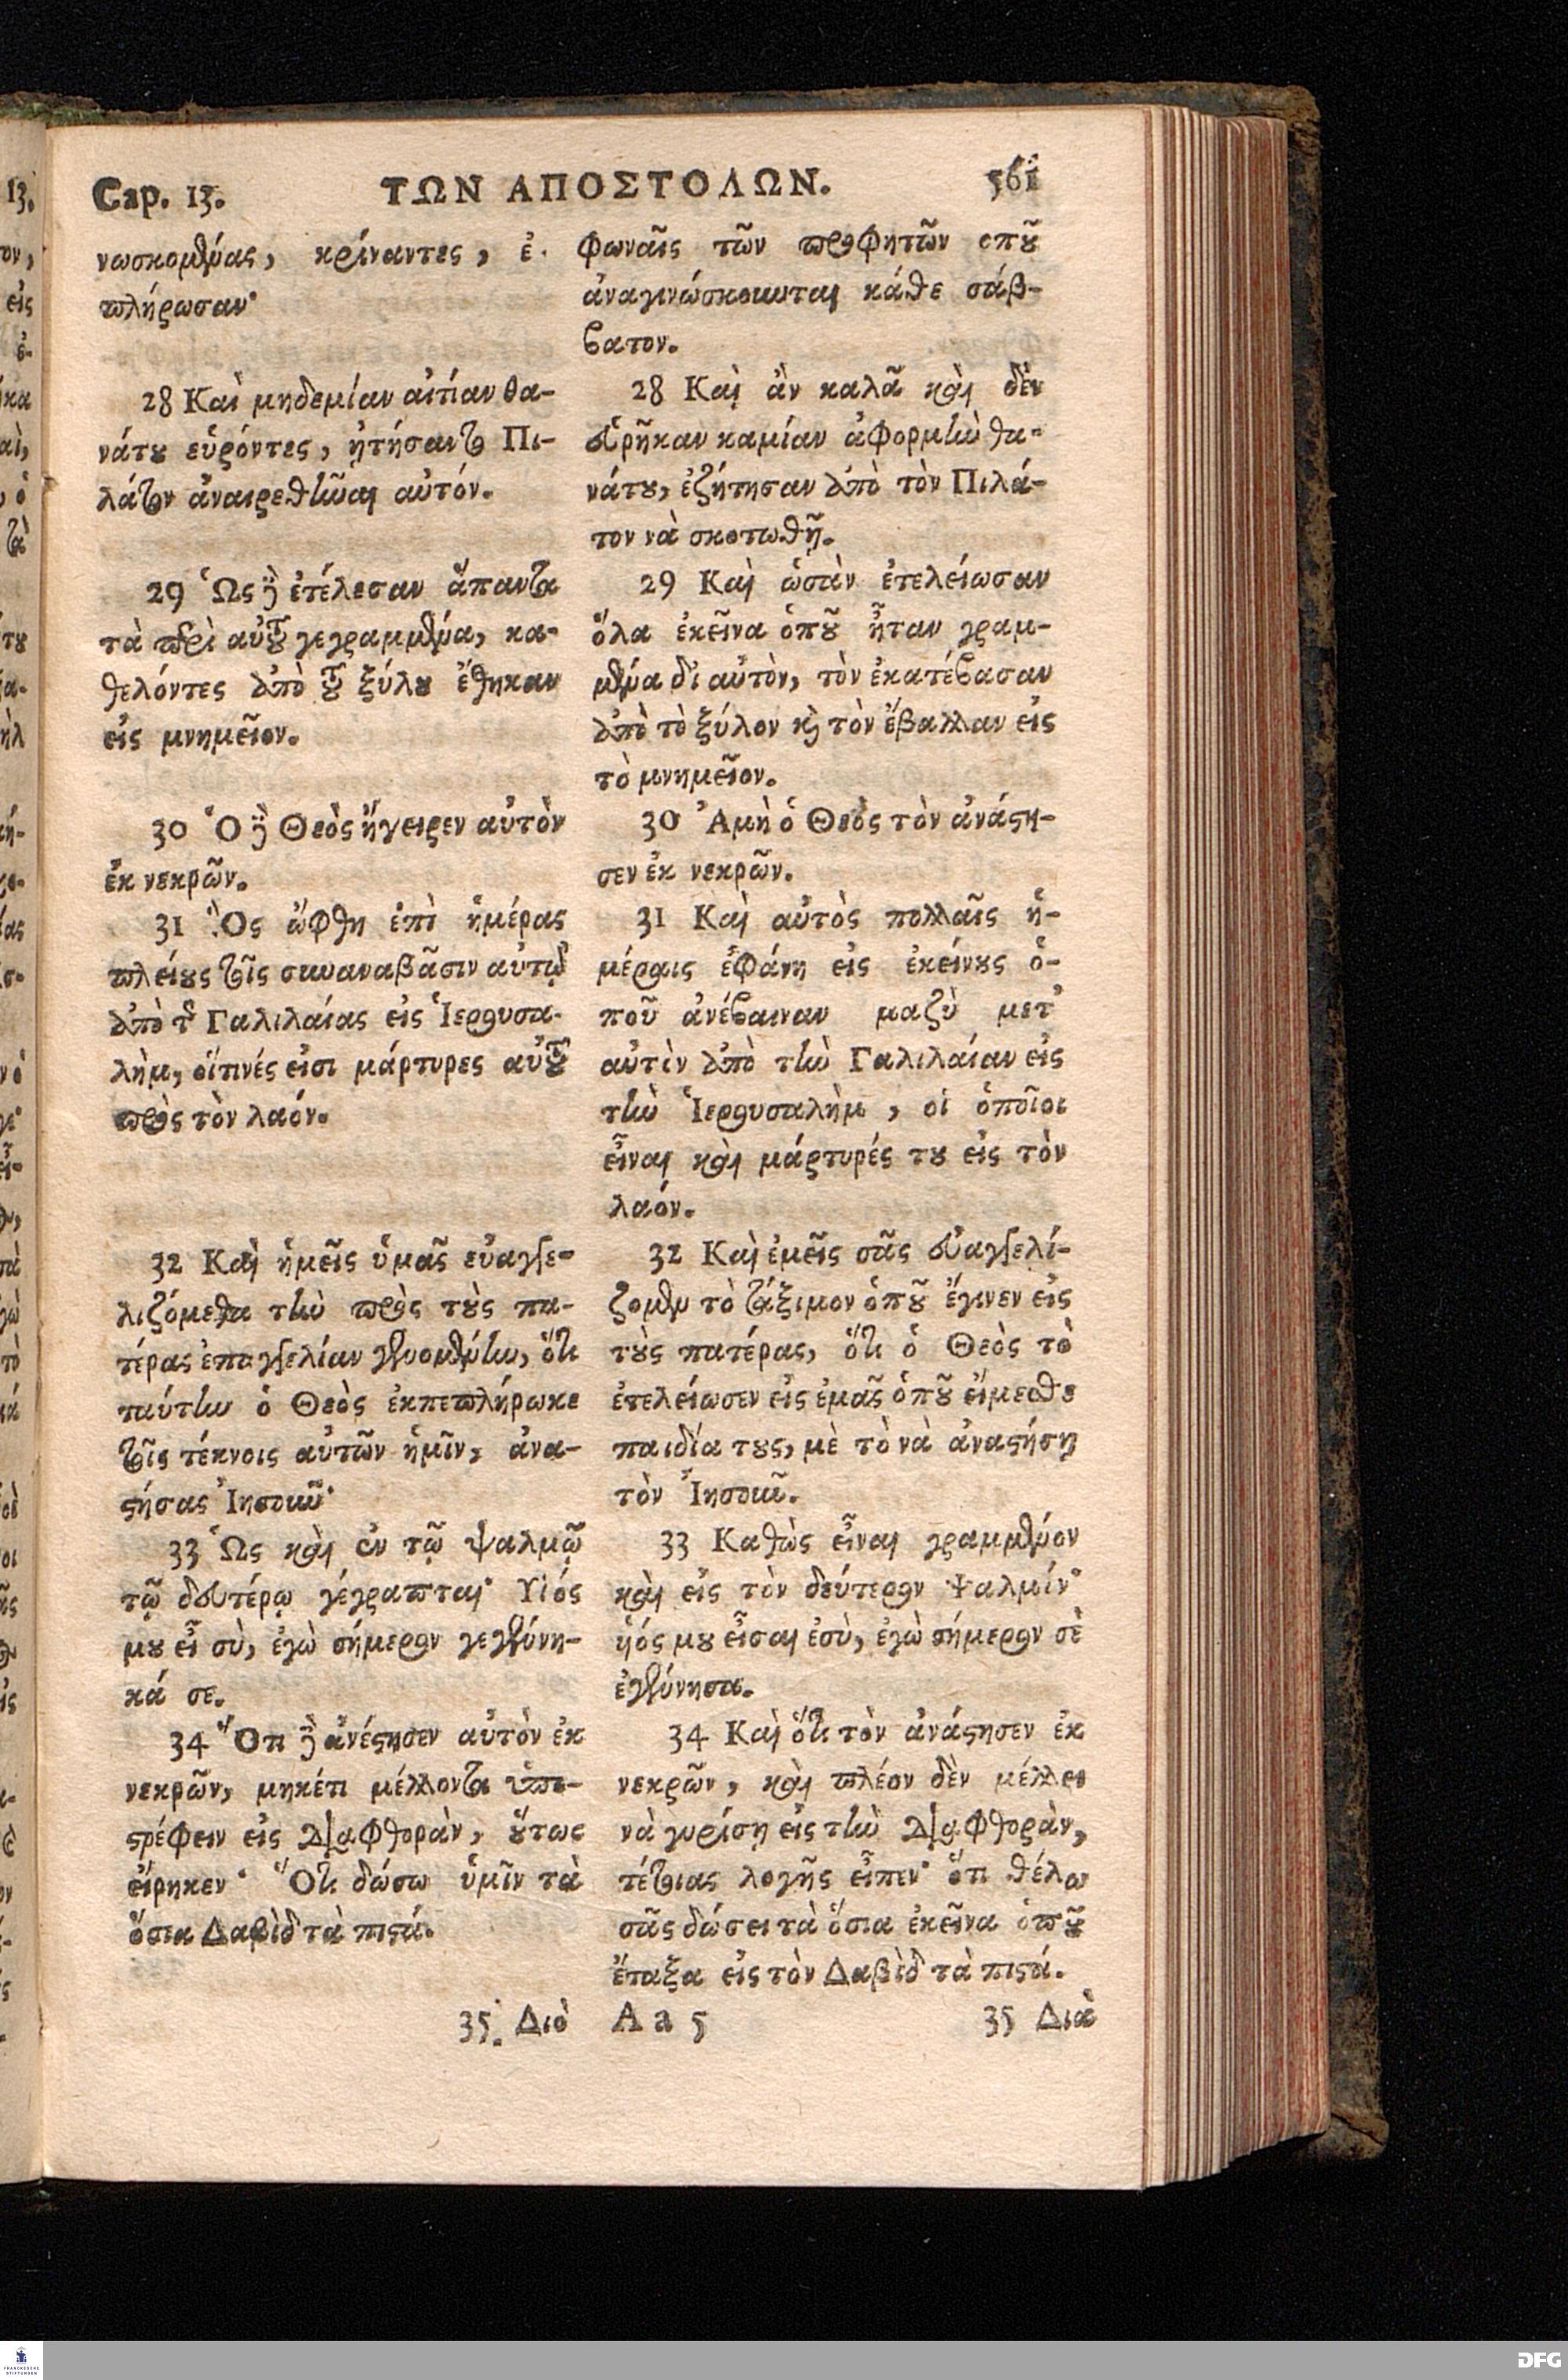 Cap. 13. ΤΩΝ ΑΠΟΣΤΟΛΩΝ. 561
νωσκομένας, κρίναντες, ἐ-
πλήρωσαν·
28 Καὶ μηδεμίαν αἰτίαν θα-
νάτȣ εὑρόντες, ᾐτήσαντο Πι-
λάτον ἀναιρεθῆναι αὐτόν.
29 Ὡς δὲ ἐτέλεσαν ἅπαντα
τὰ περὶ αὐτȣ͂ γεγραμμένα, κα-
θελόντες ἀπὸ τȣ͂ ξύλȣ ἔθηκαν
εἰς μνημεῖον.
30 Ὁ δὲ Θεὸς ἤγειρεν αὐτὸν
ἐκ νεκρῶν.
31 Ὃς ὤφθη ἐπὶ ἡμέρας
πλείȣς τοῖς συναναβᾶσιν αὐτῷ
ἀπὸ τῆς Γαλιλαίας εἰς Ἱερουσα-
λὴμ, οἵτινές εἰσι μάρτυρες αὐτȣ͂
πρὸς τὸν λαόν.
32 Καὶ ἡμεῖς ὑμᾶς εὐαγγε-
λιζόμεθα τὴν πρὸς τȣ̀ς πα-
τέρας ἐπαγγελίαν γενομένην, ὅτι
ταύτην ὁ Θεὸς ἐκπεπλήρωκε
τοῖς τέκνοις αὐτῶν ἡμῖν, ἀνα-
ϛήσας Ἰησοῦν·
33 Ὡς καὶ ἐν τῷ ψαλμῷ
τῷ δευτέρῳ γέγραπται· Υἱός
μȣ εἶ σὺ, ἐγὼ σήμερον γεγέννη-
κά σε.
34 Ὅτι δὲ ἀνέϛησεν αὐτὸν ἐκ
νεκρῶν, μηκέτι μέλλοντα ὑπο-
ϛρέφειν εἰς διαφθορὰν, ȣ̔́τως
εἴρηκεν· Ὅτι δώσω ὑμῖν τὰ
ὅσια Δαβὶδ τὰ πιϛά.
35. Διὸ
φωναῖς τῶν προφητῶν ὁπȣ͂
ἀναγινώσκουνται κάθε σάβ-
βατον.
28 Καὶ ἂν καλᾶ καὶ δὲν
εὑρῆκαν καμίαν ἀφορμὴν θα-
νάτȣ, ἐζήτησαν ἀπὸ τὸν Πιλά-
τον νὰ σκοτωθῇ.
29 Καὶ ὡσὰν ἐτελείωσαν
ὅλα ἐκεῖνα ὁπȣ͂ ἦταν γραμ-
μένα δι' αὐτὸν, τὸν ἐκατέβασαν
ἀπὸ τὸ ξύλον καὶ τὸν ἔβαλλαν εἰς
τὸ μνημεῖον.
30 Ἀμὴ ὁ Θεὸς τὸν ἀνάϛη-
σεν ἐκ νεκρῶν.
31 Καὶ αὐτὸς πολλαῖς ἡ-
μέραις ἐφάνη εἰς ἐκείνȣς ὁ-
ποῦ ἀνέβαιναν μαζὺ μετ'
αὐτὸν ἀπὸ τὴν Γαλιλαίαν εἰς
τὴν Ἱερουσαλὴμ, οἱ ὁποῖοι
εἶναι καὶ μάρτυρές τȣ εἰς τὸν
λαόν.
32 Καὶ ἐμεῖς σᾶς εὐαγγελί-
ζομεν τὸ τάξιμον ὁπȣ͂ ἔγινεν εἰς
τȣ̀ς πατέρας, ὅτι ὁ Θεὸς τὸ
ἐτελείωσεν εἰς ἐμᾶς ὁπȣ͂ εἴμεσθε
παιδία τȣς, μὲ τὸ νὰ ἀναϛήσῃ
τὸν Ἰησοῦν.
33 Καθὼς εἶναι γραμμένον
καὶ εἰς τὸν δεύτερον Ψαλμόν·
ὑιός μȣ εἶσαι ἐσὺ, ἐγὼ σήμερον σὲ
ἐγέννησα.
34 Καὶ ὅτι τὸν ἀνάϛησεν ἐκ
νεκρῶν, καὶ πλέον δὲν μέλλει
νὰ γυρίσῃ εἰς τὴν διαφθορὰν,
τέτοιας λογῆς εἶπεν· ὅτι θέλω
σᾶς δώσει τὰ ὅσια ἐκεῖνα ὁπȣ͂
ἔταξα εἰς τὸν Δαβὶδ τὰ πιϛά.
A a 5 35 Διὰ
FRANCKESCHE STIFTUNGEN
DFG